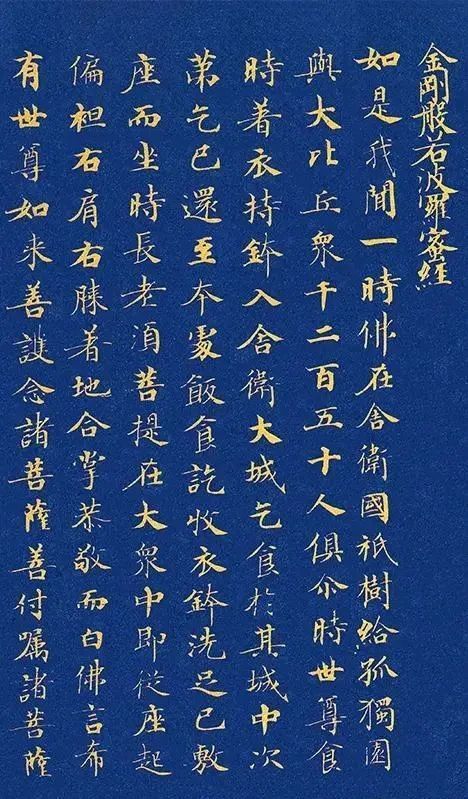 金剛般若波羅蜜經
如是我聞一時佛在舍衛國祇樹給孤獨園
與大比丘眾千二百五十人俱尒時世尊食
時著衣持鉢入舍衛大城乞食於其城中次
苐乞已還至本處飯食訖收衣鉢洗足已敷
座而坐時長老須菩提在大眾中即從座起
偏袒右肩右膝著地合掌恭敬而白佛言希
有世尊如来善護念諸菩薩善付囑諸菩薩